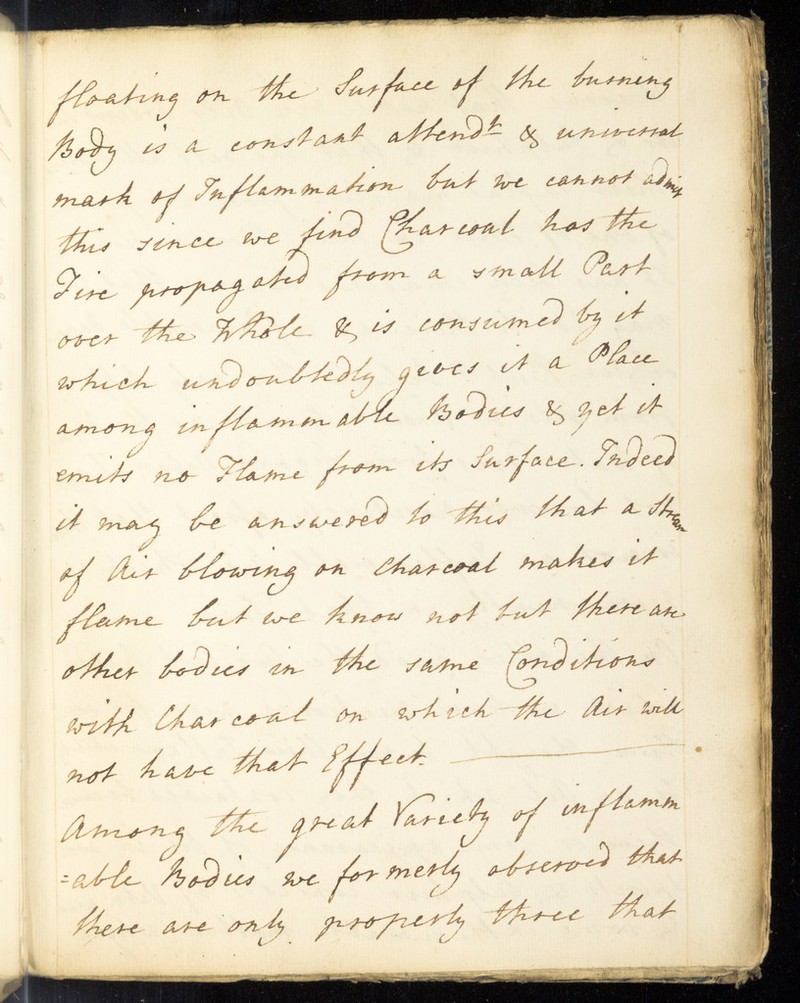 floating on the Surface of the burning
Body is a constant attendt & universal
mark of Inflammation but we cannot admit
this since we find Charcoal has the
Fire propagated from a small Part
over the Whole & is consumed by it
which undoubtedly gives it a Place
among inflammable Bodies & yet it
emits no Flame from its Surface. Indeed
it may be answered to this that a Stream
of Air blowing on Charcoal makes it
flame but we know not but there are
other bodies in the same Conditions
with Charcoal on which the Air will
not have that Effect.
Among the great Variety of inflamm
=able Bodies we formerly observed that
there are only properly three that